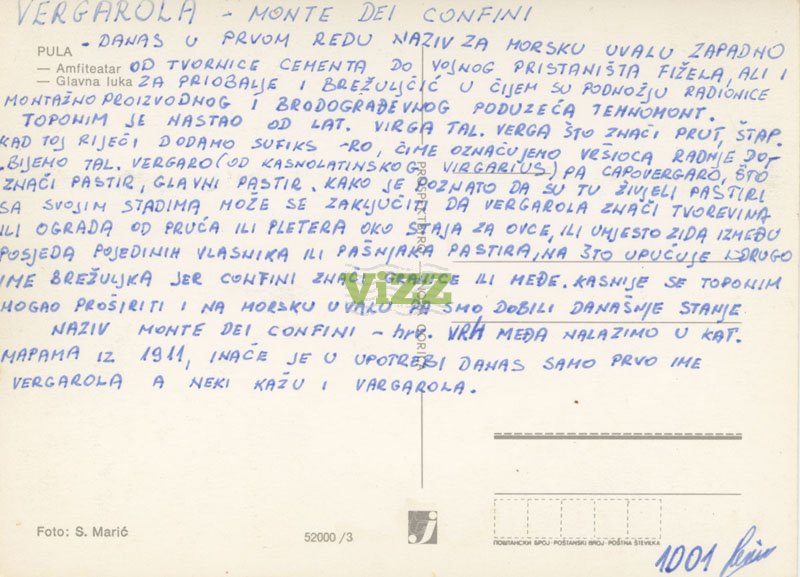 VERGAROLA - MONTE DEI CONFINI
- DANAS U PRVOM REDU NAZIV ZA MORSKU UVALU ZAPADNO
OD TVORNICE CEMENTA DO VOJNOG PRISTANIŠTA FIŽELA, ALI I
ZA PRIOBALJE I BREŽULJČIĆ U ČIJEM SU PODNOŽJU RADIONICE
MONTAŽNO PROIZVODNOG I BRODOGRAĐEVNOG PODUZEĆA TEHNOMONT.
TOPONIM JE NASTAO OD LAT. VIRGA TAL. VERGA ŠTO ZNAČI PRUT, ŠTAP.
KAD TOJ RIJEČI DODAMO SUFIKS -RO, ČIME OZNAČUJEMO VRŠIOCA RADNJE DO-
BIJEMO TAL. VERGARO (OD KASNOLATINSKOG VIRGARIUS) PA CAPOVERGARO, ŠTO
ZNAČI PASTIR, GLAVNI PASTIR. KAKO JE POZNATO DA SU TU ŽIVJELI PASTIRI
SA SVOJIM STADIMA MOŽE SE ZAKLJUČITI DA VERGAROLA ZNAČI TVOREVINA
ILI OGRADA OD PRUĆA ILI PLETERA OKO STAJA ZA OVCE, ILI UMJESTO ZIDA IZMEĐU
POSJEDA POJEDINIH VLASNIKA ILI PAŠNJAKA PASTIRA, NA ŠTO UPUĆUJE I DRUGO
IME BREŽULJKA JER CONFINI ZNAČI GRANICE ILI MEĐE. KASNIJE SE TOPONIM
MOGAO PROŠIRITI I NA MORSKU UVALU PA SMO DOBILI DANAŠNJE STANJE
NAZIV MONTE DEI CONFINI - hrv. VRH MEĐA NALAZIMO U KAT.
MAPAMA IZ 1911, INAČE JE U UPOTREBI DANAS SAMO PRVO IME
VERGAROLA A NEKI KAŽU I VARGAROLA.
PULA
— Amfiteatar
— Glavna luka
vizz
Foto: S. Marić
52000 /3
ПОШТАНСКИ БРОЈ - POŠTANSKI BROJ - POŠTNA ŠTEVILKA
1001